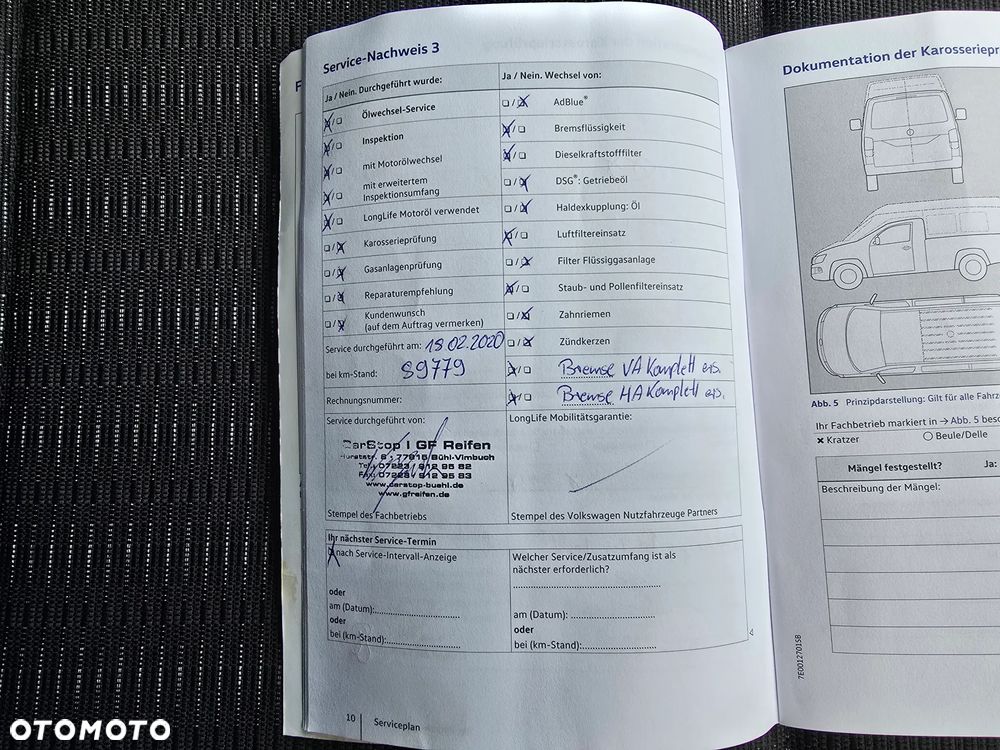 Service-Nachweis 3
Ja / Nein. Durchgeführt wurde:
Ja / Nein. Wechsel von:
Ölwechsel-Service
AdBlue®
Inspektion
Bremsflüssigkeit
mit Motorölwechsel
Dieselkraftstofffilter
mit erweitertem
Inspektionsumfang
DSG®: Getriebeöl
LongLife Motoröl verwendet
Haldexkupplung: Öl
Karosserieprüfung
Luftfiltereinsatz
Gasanlagenprüfung
Filter Flüssiggasanlage
Reparaturempfehlung
Staub- und Pollenfiltereinsatz
Kundenwunsch
(auf dem Auftrag vermerken)
Zahnriemen
Service durchgeführt am: 18.02.2020
Zündkerzen
bei km-Stand: 89779
Bremse VA Komplett ers.
Rechnungsnummer:
Bremse HA Komplett ers.
Service durchgeführt von:
LongLife Mobilitätsgarantie:
CarStop I GF Reifen
6 · 77815 Bühl-Vimbuch
Tel. 07223 / 912 95 82
Fax 07223 / 912 95 83
www.carstop-buehl.de
www.gfreifen.de
Stempel des Fachbetriebs
Stempel des Volkswagen Nutzfahrzeuge Partners
Ihr nächster Service-Termin
nach Service-Intervall-Anzeige
Welcher Service/Zusatzumfang ist als
nächster erforderlich?
oder
am (Datum):
am (Datum):
oder
oder
bei (km-Stand):
bei (km-Stand):
10 Serviceplan
Dokumentation der Karosseriepr
Abb. 5 Prinzipdarstellung: Gilt für alle Fahrz
Ihr Fachbetrieb markiert in → Abb. 5 besc
× Kratzer
Beule/Delle
Mängel festgestellt? Ja:
Beschreibung der Mängel:
7E0012701SB
OTOMOTO